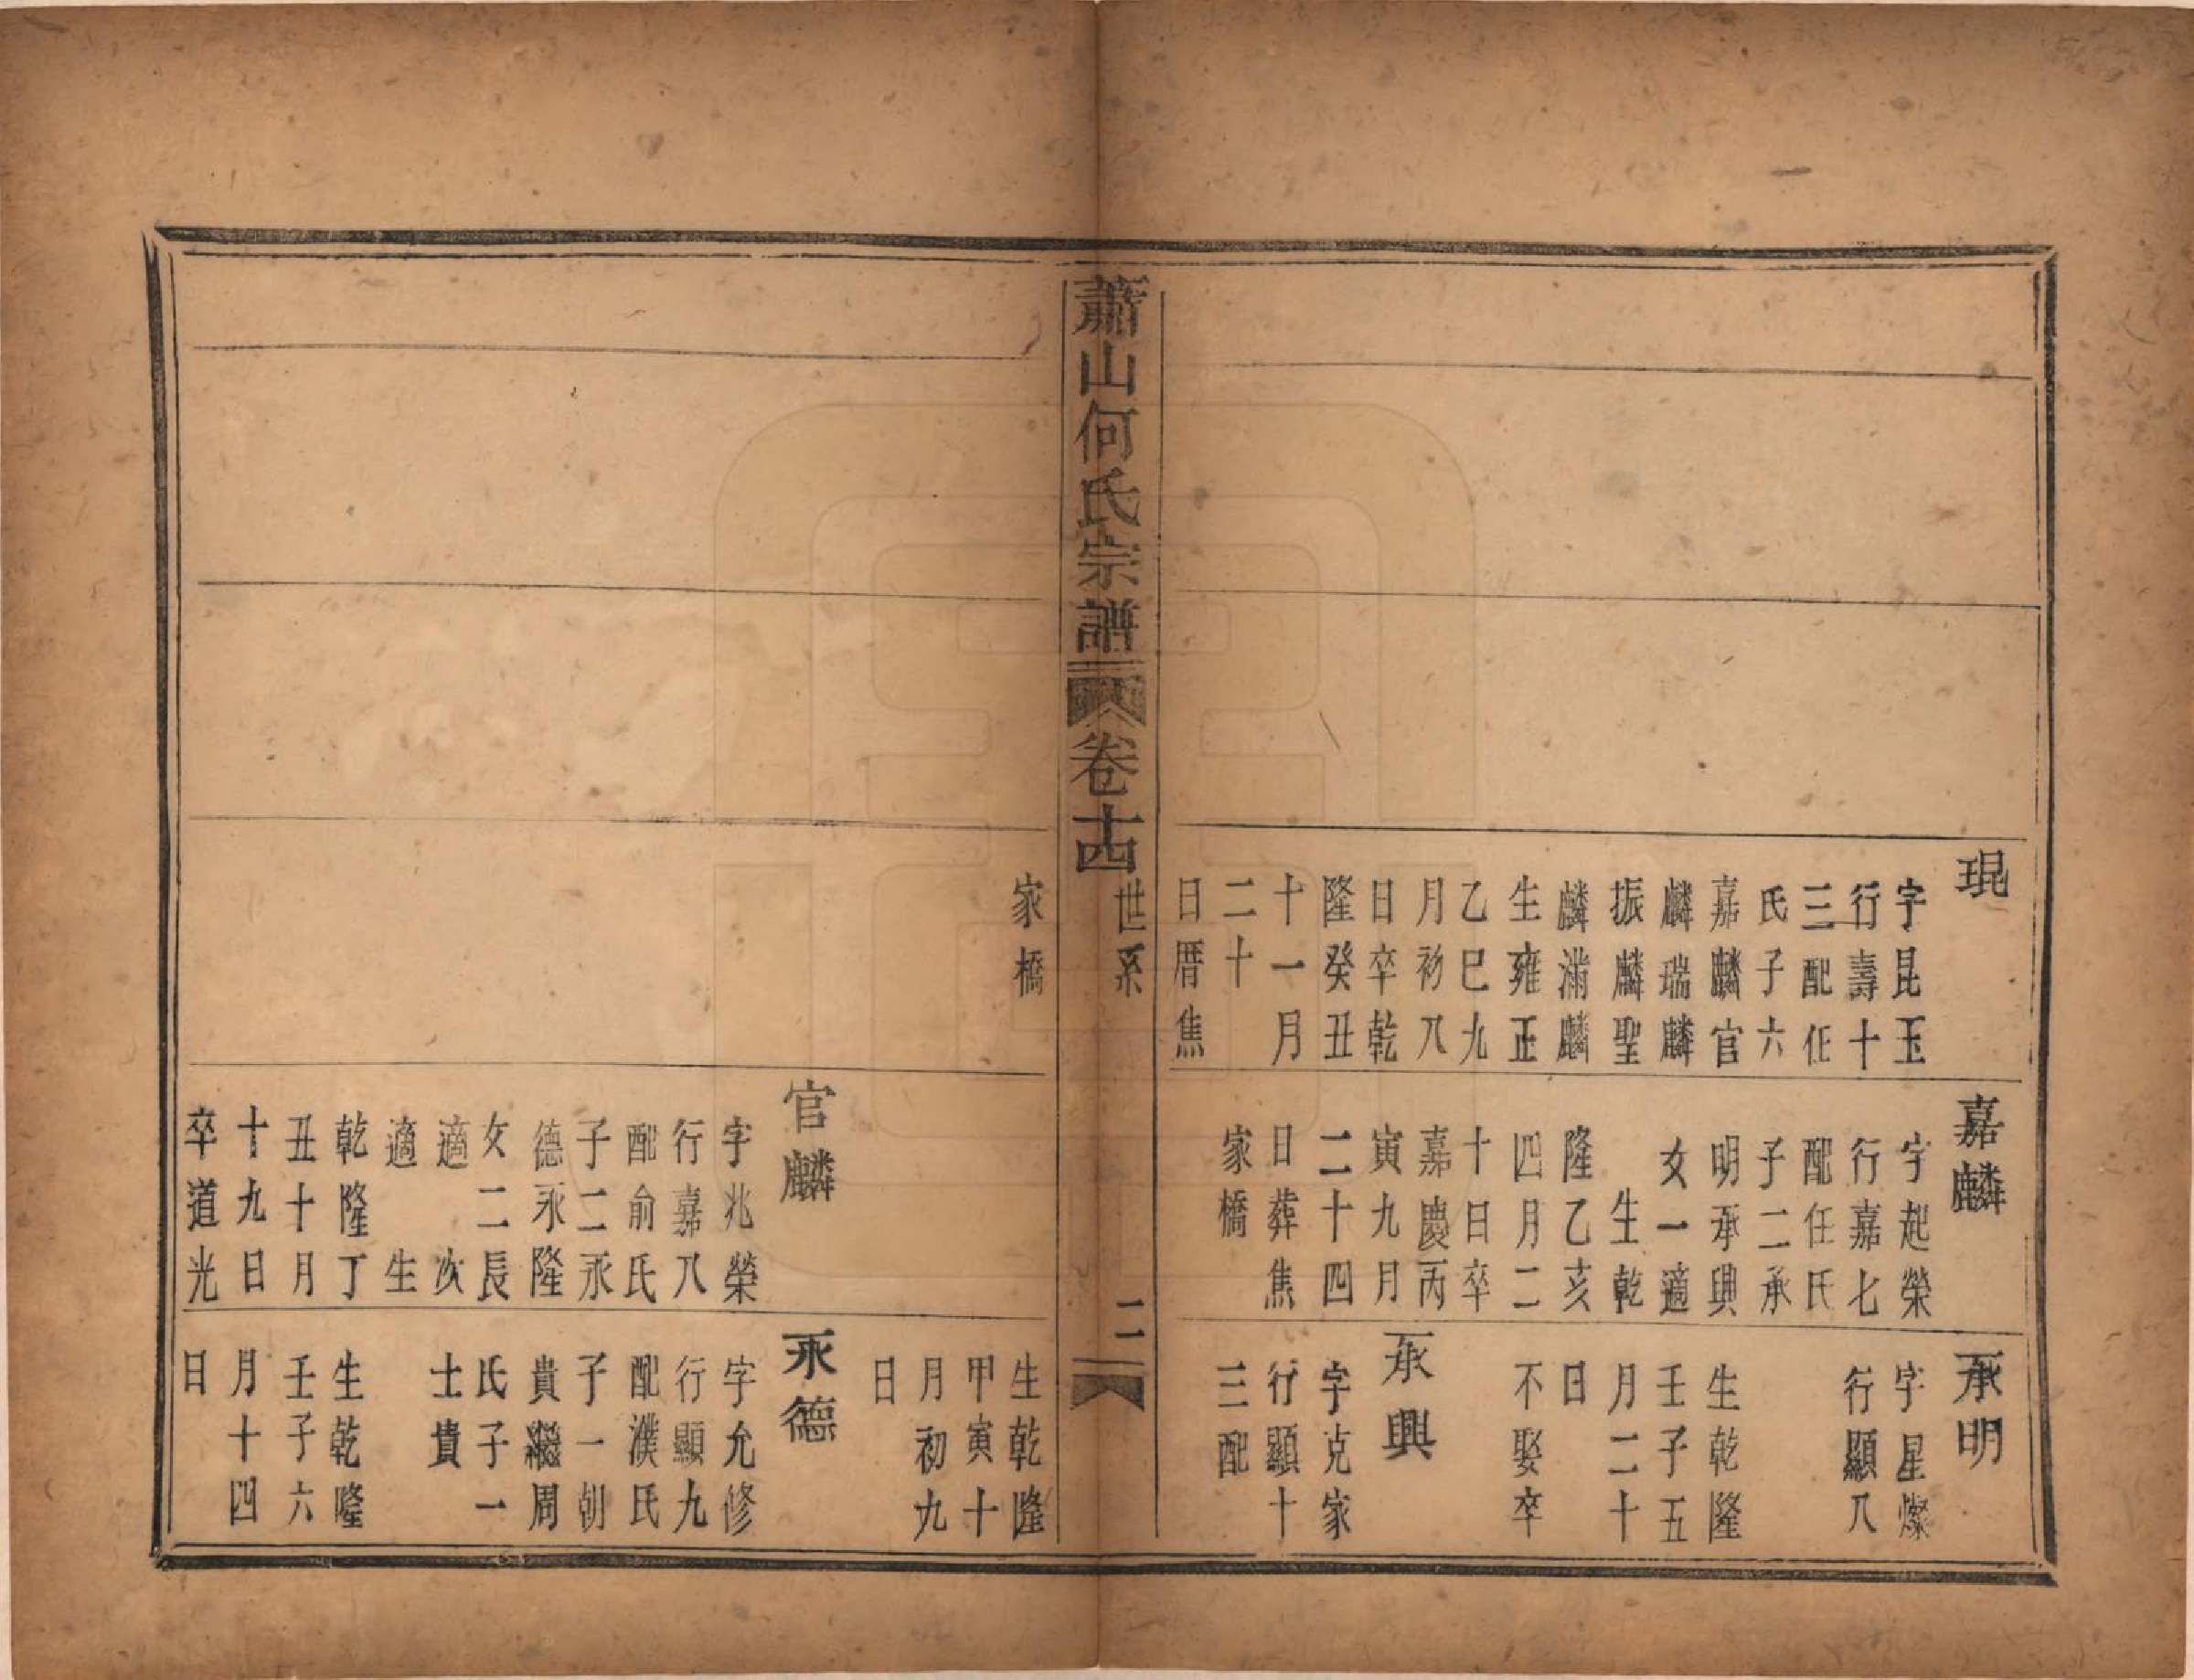 琨
字昆玉
行壽十
三配任
氏子六
嘉麟官
麟瑞麟
振麟聖
麟滿麟
生雍正
乙巳九
月初八
日卒乾
隆癸丑
十一月
二十
日厝焦
嘉麟
字起榮
行嘉七
配任氏
子二承
明承興
女一適
生乾
隆乙亥
四月二
十日卒
嘉慶丙
寅九月
二十四
日葬焦
家橋
承明
字星燦
行顯八
生乾隆
壬子五
月二十
日
不娶卒
承興
字克家
行顯十
三配
蕭山何氏宗譜
卷十四
世系
二
家橋
官麟
字兆榮
行嘉八
配俞氏
子二永
德永隆
女二長
適　次
適　生
乾隆丁
丑十月
十九日
卒道光
生乾隆
甲寅十
月初九
日
永德
字允修
行顯九
配濮氏
子一朝
貴繼周
氏子一
士貴
生乾隆
壬子六
月十四
日